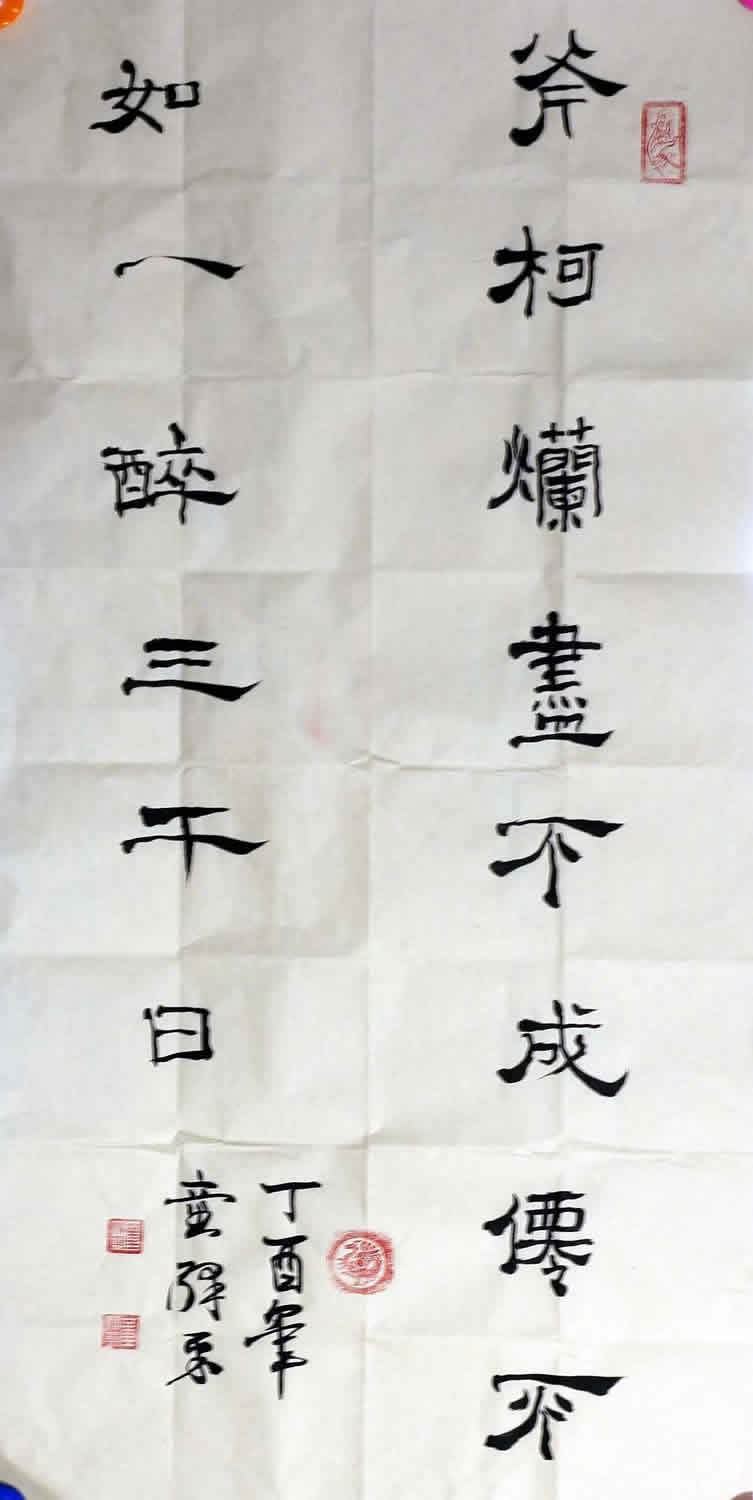 斧柯爛盡不成僊不
如一醉三千日
丁酉年